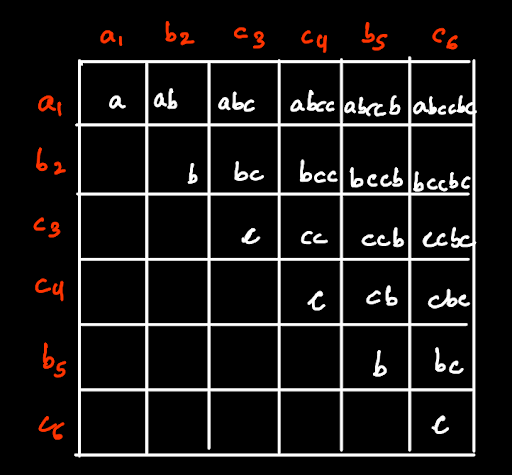 a1 b2 c3 c4 b5 c6
a1 a ab abc abcc abccb abccbc
b2 b bc bcc bccb bccbc
c3 c cc ccb ccbc
c4 c cb cbc
b5 b bc
c6 c